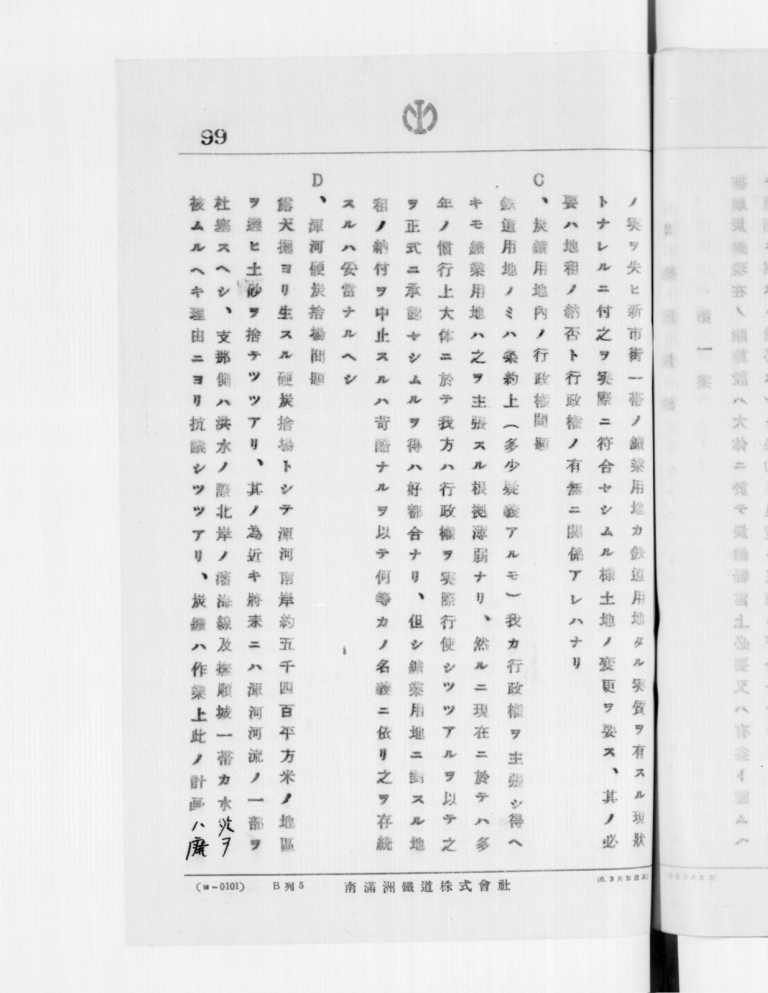 99
ノ実ヲ失ヒ新市街一帯ノ鑛業用地カ鉄道用地タル実質ヲ有スル現狀
トナレルニ付之ヲ実際ニ符合セシムル樣土地ノ変更ヲ要ス、其ノ必
要ハ地租ノ納否ト行政権ノ有無ニ関係アレハナリ
C、炭鑛用地內ノ行政権問題
鉄道用地ノミハ条約上(多少疑義アルモ)我カ行政権ヲ主張シ得ヘ
キモ鑛業用地ハ之ヲ主張スル根拠薄弱ナリ、然ルニ現在ニ於テハ多
年ノ慣行上大体ニ於テ我方ハ行政権ヲ実際行使シツツアルヲ以テ之
ヲ正式ニ承認セシムルヲ得ハ好都合ナリ、但シ鑛業用地ニ對スル地
租ノ納付ヲ中止スルハ苛酷ナルヲ以テ何等カノ名義ニ依リ之ヲ存続
スルハ妥當ナルヘシ
D、渾河硬炭捨場問題
露天掘ヨリ生スル硬炭捨場トシテ渾河南岸約五千四百平方米ノ地區
ヲ選ヒ土砂ヲ捨テツツアリ、其ノ為近キ將來ニハ渾河河流ノ一部ヲ
杜塞スヘシ、支那側ハ洪水ノ際北岸ノ瀋海線及撫順城一帯カ水災ヲ
被ムルヘキ理由ニヨリ抗議シツツアリ、炭鑛ハ作業上此ノ計画ハ廃
(ヨ-0101) B列5 南滿洲鐵道株式會社